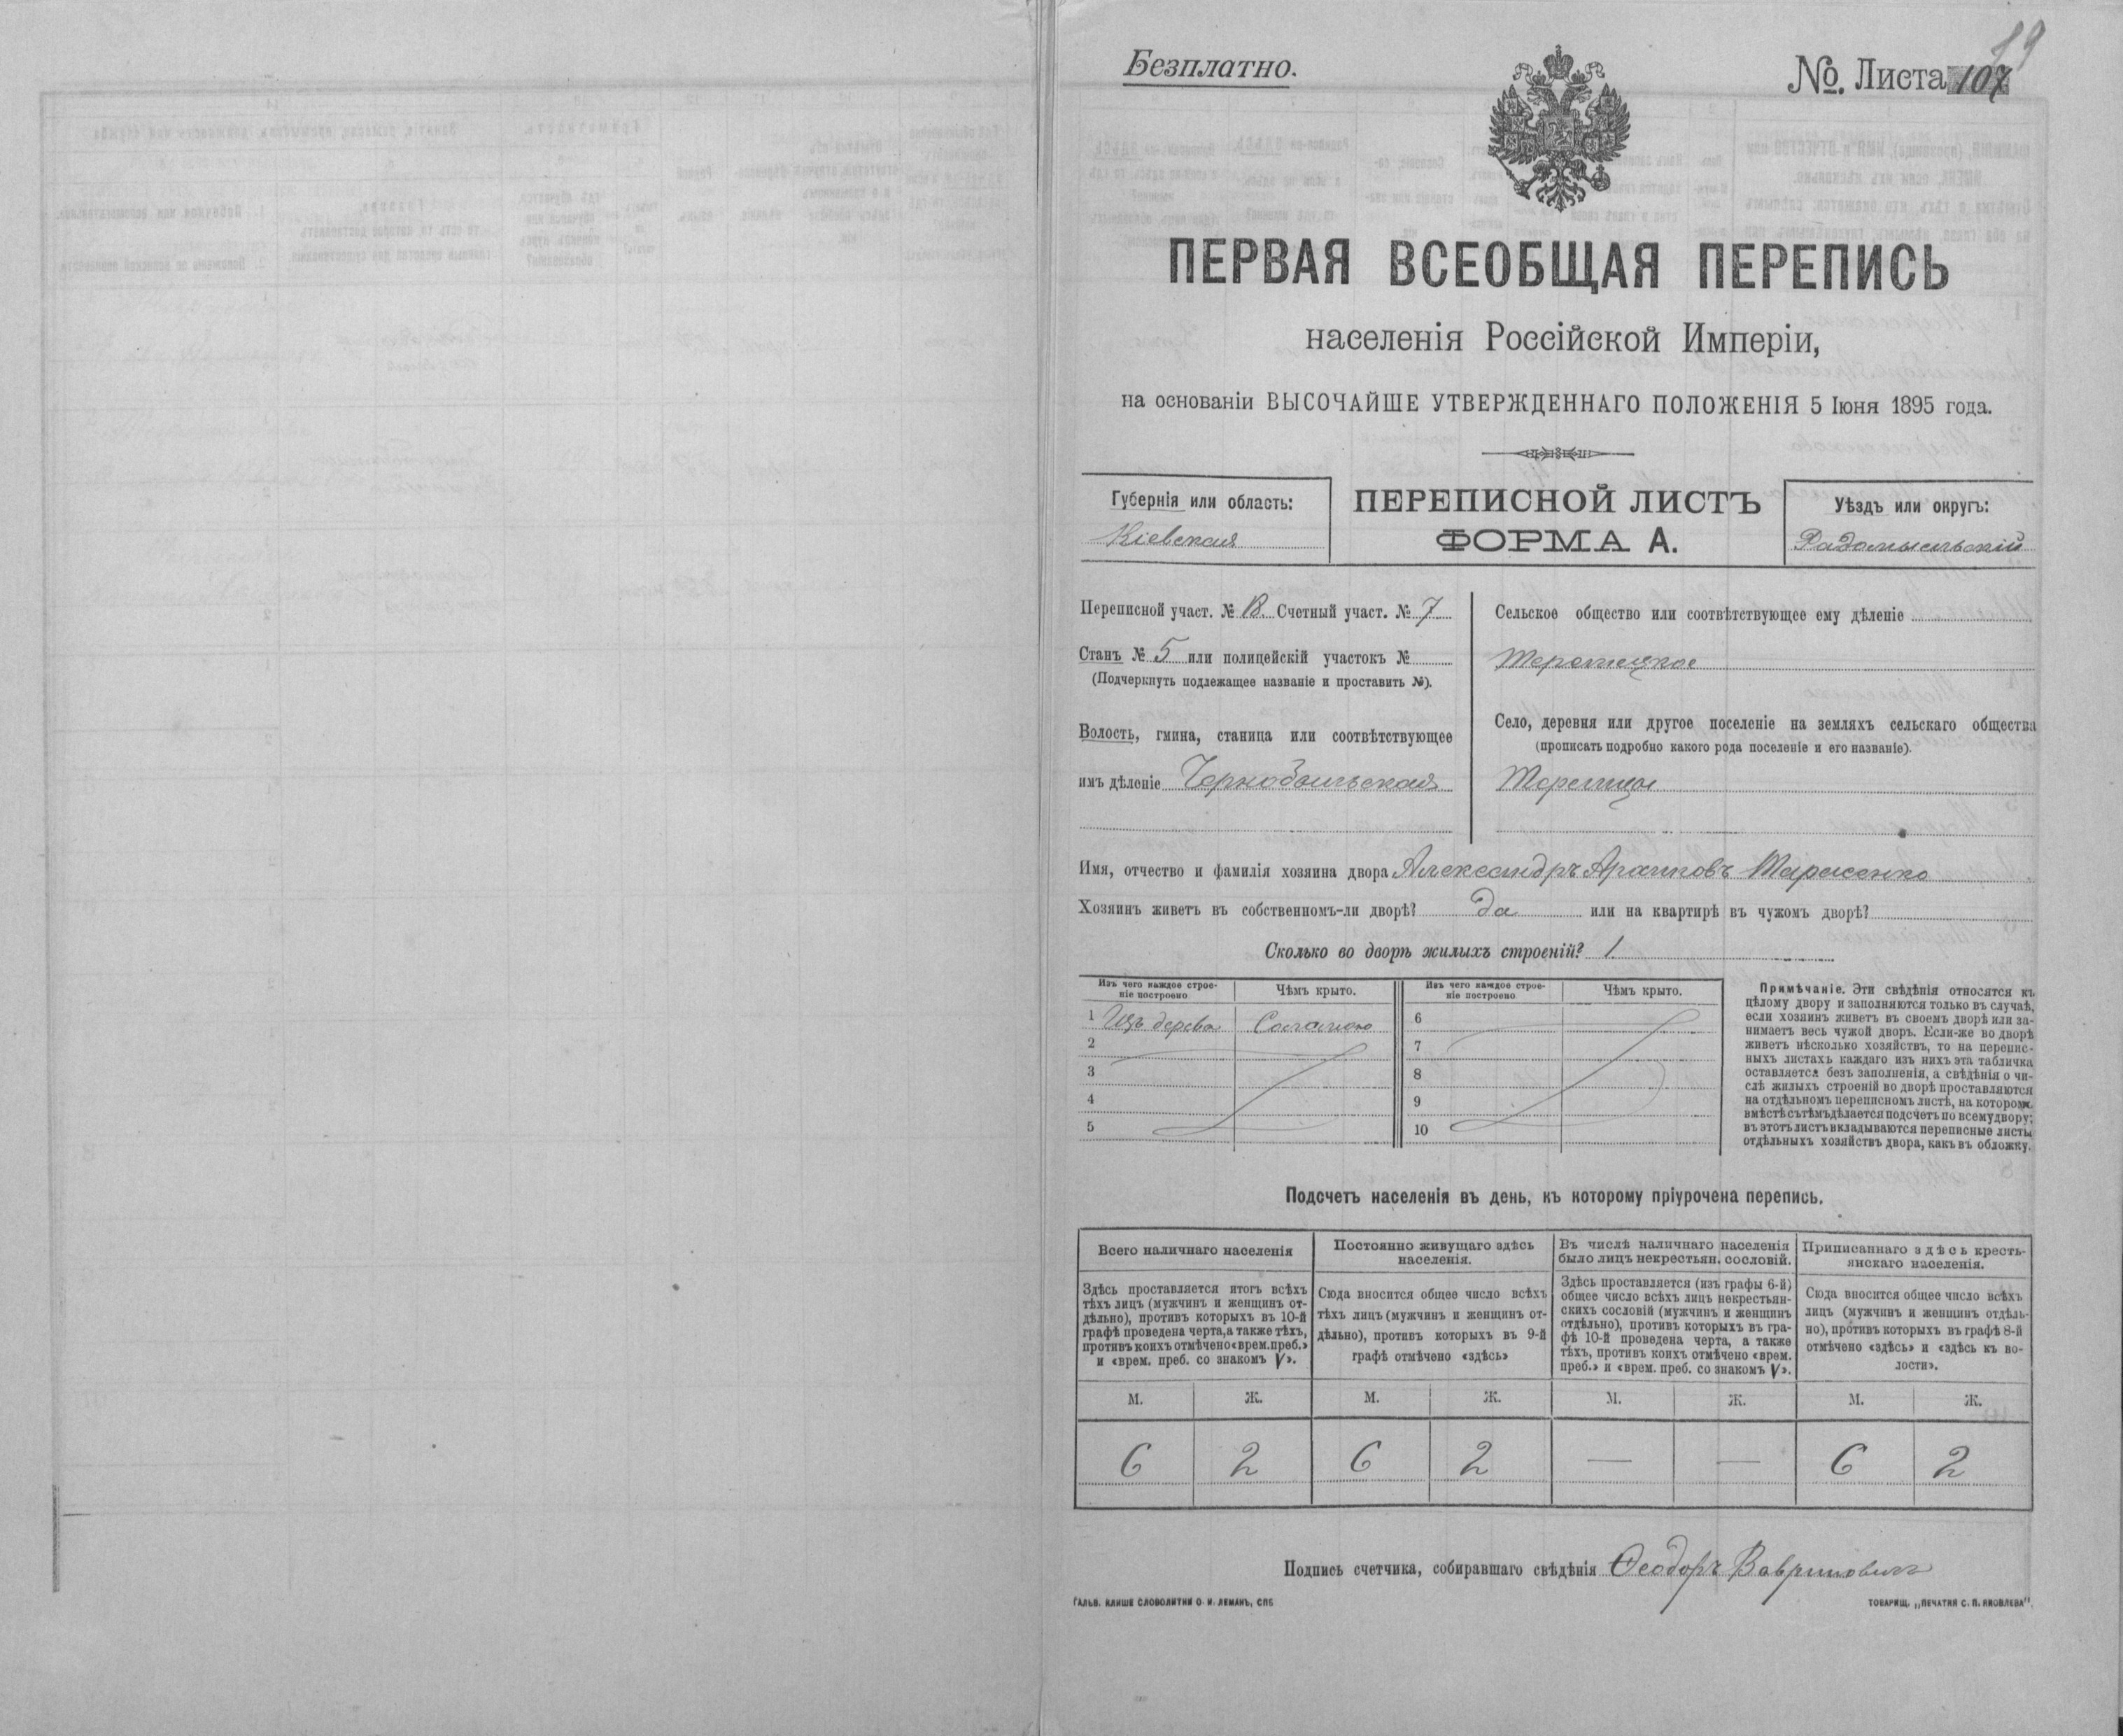 Безплатно.
№. Листа 107
ПЕРВАЯ ВСЕОБЩАЯ ПЕРЕПИСЬ
населенія Россійской Имперіи,
на основаніи ВЫСОЧАЙШЕ УТВЕРЖДЕННАГО ПОЛОЖЕНІЯ 5 Іюня 1895 года.
Губернія или область:
Кіевская
ПЕРЕПИСНОЙ ЛИСТЪ
ФОРМА А.
Уѣздъ или округъ:
Радомысльскій
Переписной участ. № Счетный участ. № 7
Станъ № 5 или полицейскій участокъ №
(Подчеркнуть подлежащее названіе и проставить №).
Волость, гмина, станица или соотвѣтствующее
имъ дѣленіе Чернобыльская
Сельское общество или соотвѣтствующее ему дѣленіе
Теремецкое
Село, деревня или другое поселеніе на земляхъ сельскаго общества
(прописать подробно какого рода поселеніе и его названіе).
Теремцы
Имя, отчество и фамилія хозяина двора Александръ Тарасенко
Хозяинъ живетъ въ собственномъ-ли дворѣ? да или на квартирѣ въ чужомъ дворѣ?
Сколько во дворѣ жилыхъ строеній? 1
Изъ чего каждое строе-
ніе построено
Чѣмъ крыто.
Изъ чего каждое строе-
ніе построено
Чѣмъ крыто.
1 Изъ дерева Соломою
2
3
4
5
6
7
8
9
10
Примѣчаніе. Эти свѣдѣнія относятся къ
цѣлому двору и заполняются только въ случаѣ,
если хозяинъ живетъ въ своемъ дворѣ или за-
нимаетъ весь чужой дворъ. Если-же во дворѣ
живетъ нѣсколько хозяйствъ, то на перепис-
ныхъ листахъ каждаго изъ нихъ эта табличка
оставляется безъ заполненія, а свѣдѣнія о чи-
слѣ жилыхъ строеній во дворѣ проставляются
на отдѣльномъ переписномъ листѣ, на которомъ
вмѣстѣ съ тѣмъ дѣлается подсчетъ по всему двору;
въ этотъ листъ вкладываются переписные листы
отдѣльныхъ хозяйствъ двора, какъ въ обложку.
Подсчетъ населенія въ день, къ которому пріурочена перепись.
Всего наличнаго населенія
Здѣсь проставляется итогъ всѣхъ
тѣхъ лицъ (мужчинъ и женщинъ от-
дѣльно), противъ которыхъ въ 10-й
графѣ проведена черта, а также тѣхъ,
противъ коихъ отмѣчено «врем. преб.»
и «врем. преб. со знакомъ V».
Постоянно живущаго здѣсь
населенія.
Сюда вносится общее число всѣхъ
тѣхъ лицъ (мужчинъ и женщинъ от-
дѣльно), противъ которыхъ въ 9-й
графѣ отмѣчено «здѣсь»
Въ числѣ наличнаго населенія
было лицъ некрестьян. сословій.
Здѣсь проставляется (изъ графы 6-й)
общее число всѣхъ лицъ некрестьян-
скихъ сословій (мужчинъ и женщинъ
отдѣльно), противъ которыхъ въ гра-
фѣ 10-й проведена черта, а также
тѣхъ, противъ коихъ отмѣчено «врем.
преб.» и «врем. преб. со знакомъ V».
Приписаннаго здѣсь кресть-
янскаго населенія.
Сюда вносится общее число всѣхъ
лицъ (мужчинъ и женщинъ отдѣль-
но), противъ которыхъ въ графѣ 8-й
отмѣчено «здѣсь» и «здѣсь къ во-
лости».
М. Ж. М. Ж. М. Ж. М. Ж.
6 2 6 2 — — 6 2
Подпись счетчика, собиравшаго свѣдѣнія Ѳеодоръ
ГАЛЬВ. КЛИШЕ СЛОВОЛИТНИ О. И. ЛЕМАНЪ, СПБ
ТОВАРИЩ. „ПЕЧАТНЯ С. П. ЯКОВЛЕВА".